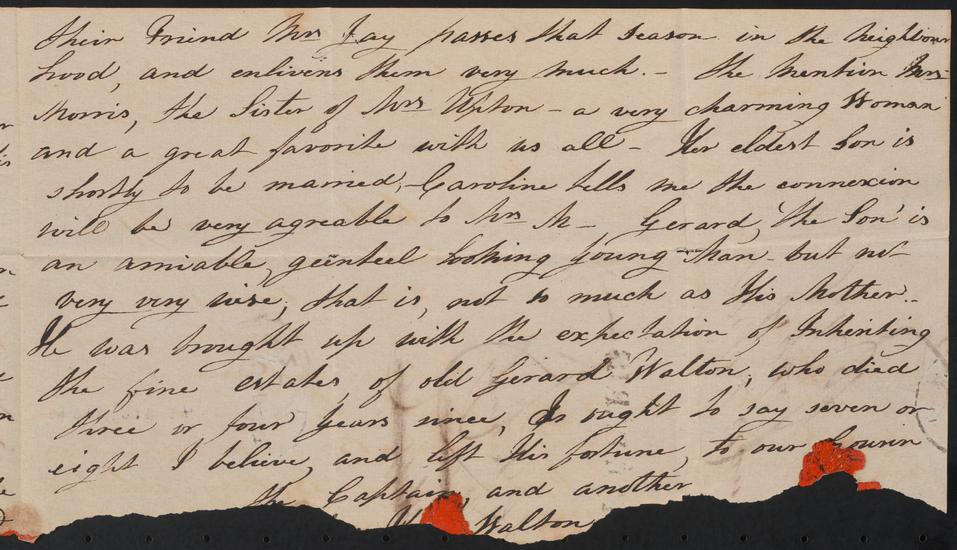 their Friend Mrs Jay passes that season in the neighbour
hood, and enlivens them very much. - the mention Mrs
Morris, the Sister of Mrs Upton - a very charming Woman
and a great favorite with us all - Her eldest Son is
shortly to be married, - Caroline tells me the connexion
will be very agreable to Mrs M - Gerard, the Son is
an amiable, geenteel looking young Man - but not
very very wise, that is, not so much as His Mother. -
He was brought up with the expectation of Inheriting
the fine estates, of old Gerard Walton, who died
three or four years since, I ought to say seven or
eight I believe, and left His fortune, to our Cousin
the Captain, and another
Walton